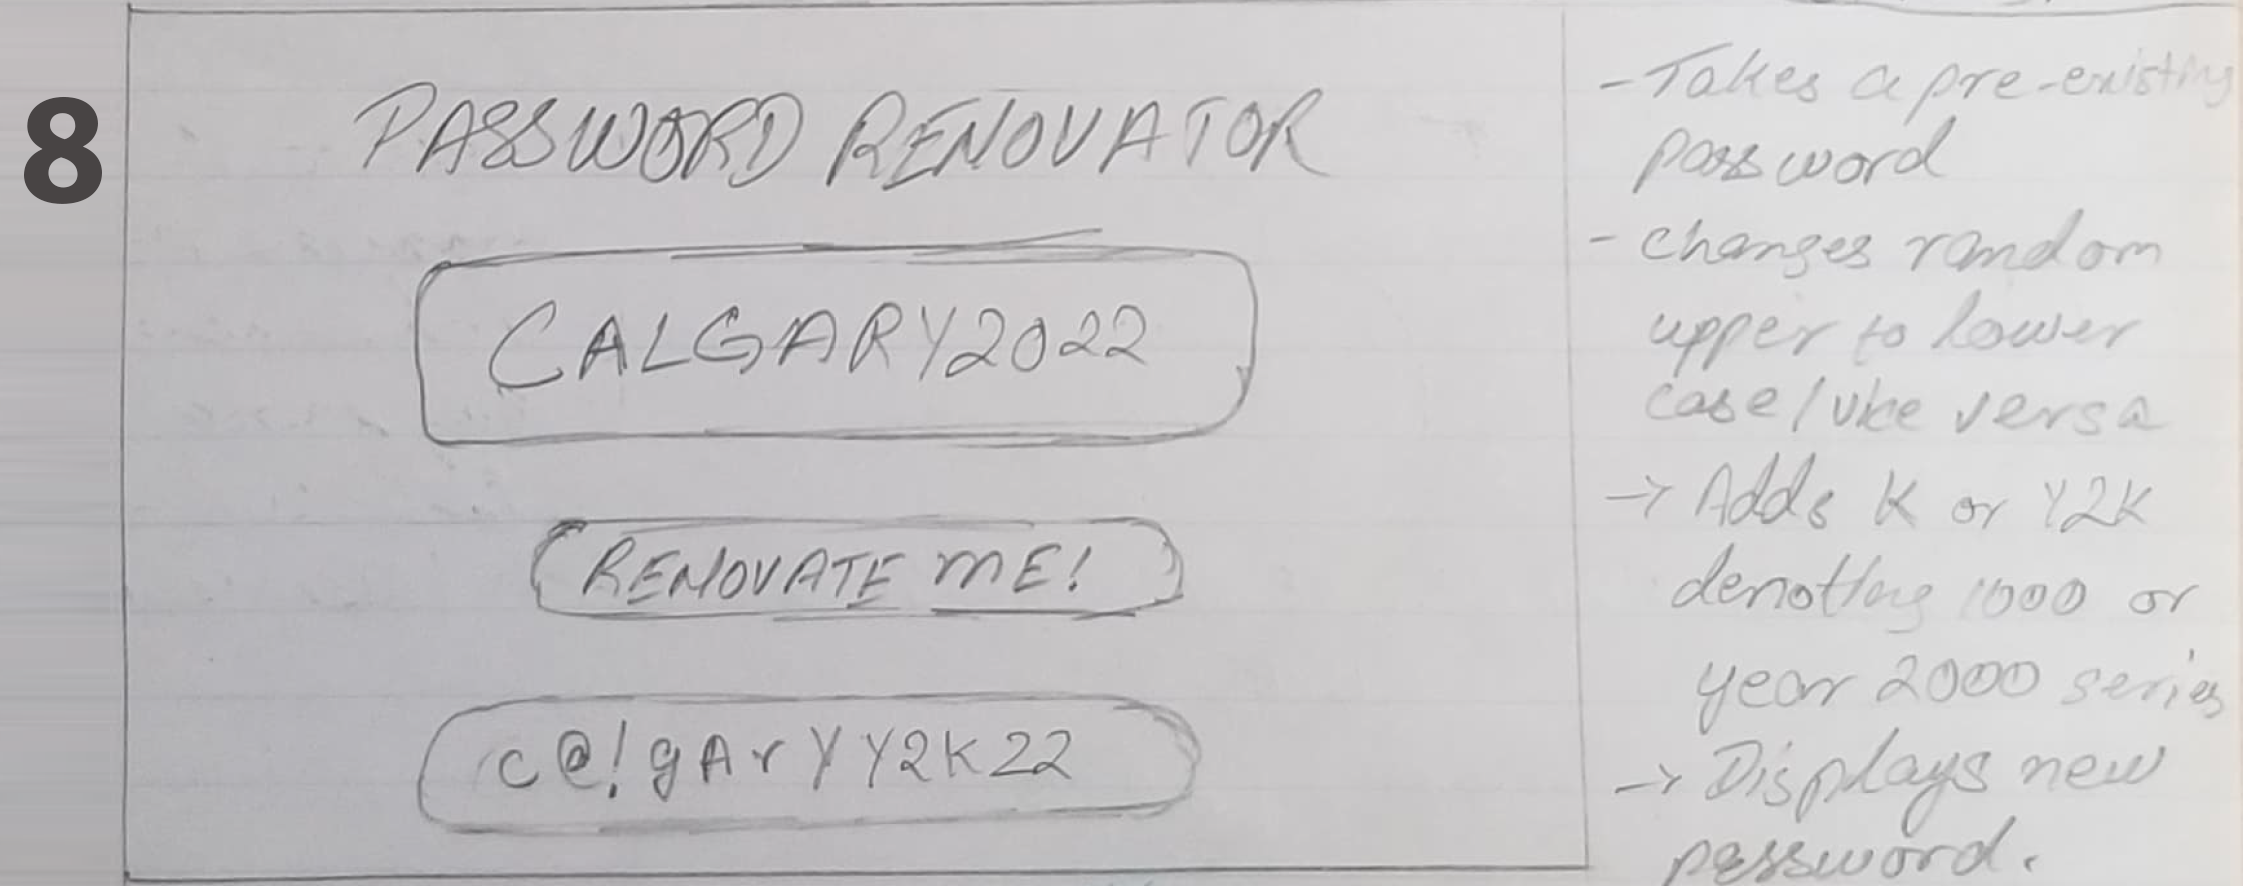 8
PASSWORD RENOVATOR
CALGARY2022
RENOVATE ME!
c@!gArYY2K22
- Takes a pre-existing
password
- changes random
upper to lower
case/vice versa
-> Adds K or Y2K
denoting 1000 or
year 2000 series
-> Displays new
password.